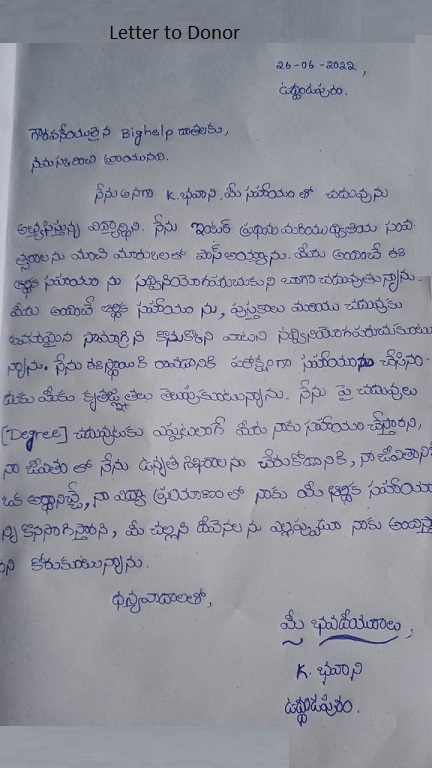 Letter to Donor
26-06-2022,
ఉద్దండపురం.
గౌరవనీయులైన Bighelp దాతలకు,
నమస్కరించి వ్రాయునది.
నేను అనగా K. భవాని. మీ సహాయం తో చదువును
అభ్యసిస్తున్న విద్యార్థిని. నేను ఇంటర్ ప్రథమ మరియు ద్వితీయ సంవ
త్సరాలను మంచి మార్కులలో పాస్ అయ్యాను. మీరు అందించే ఈ
ఆర్థిక సహాయం ను సద్వినియోగపరుచుకుని బాగా చదువుతున్నాను.
మీరు అందించే ఆర్థిక సహాయం ను, పుస్తకాలు మరియు చదువుకు
అవసరమైన సామాగ్రిని కొనుక్కొని వాటిని సద్వినియోగపరుచుకుంటు
న్నాను. నేను ఈ స్థాయికి రావడానికి పరోక్షంగా సహాయం చేసినం
దుకు మీకు కృతజ్ఞతలు తెలుపుకుంటున్నాను. నేను పై చదువులు
[Degree] చదువుటకు ఎప్పటిలాగే మీరు నాకు సహాయం చేస్తారని,
నా జీవితం లో నేను ఉన్నత శిఖరాలను చేరుకోడానికి, నా జీవితానికి
ఒక అర్థాన్నిచ్చే, నా విద్యా ప్రయాణం లో నాకు మీ ఆర్థిక సహాయా
న్ని కొనసాగిస్తారని, మీ చల్లని దీవెనలు ను ఎల్లప్పుడూ నాకు అందిస్తా
రని కోరుకుంటున్నాను.
ధన్యవాదాలతో,
మీ భవదీయురాలు,
K. భవాని
ఉద్దండపురం.